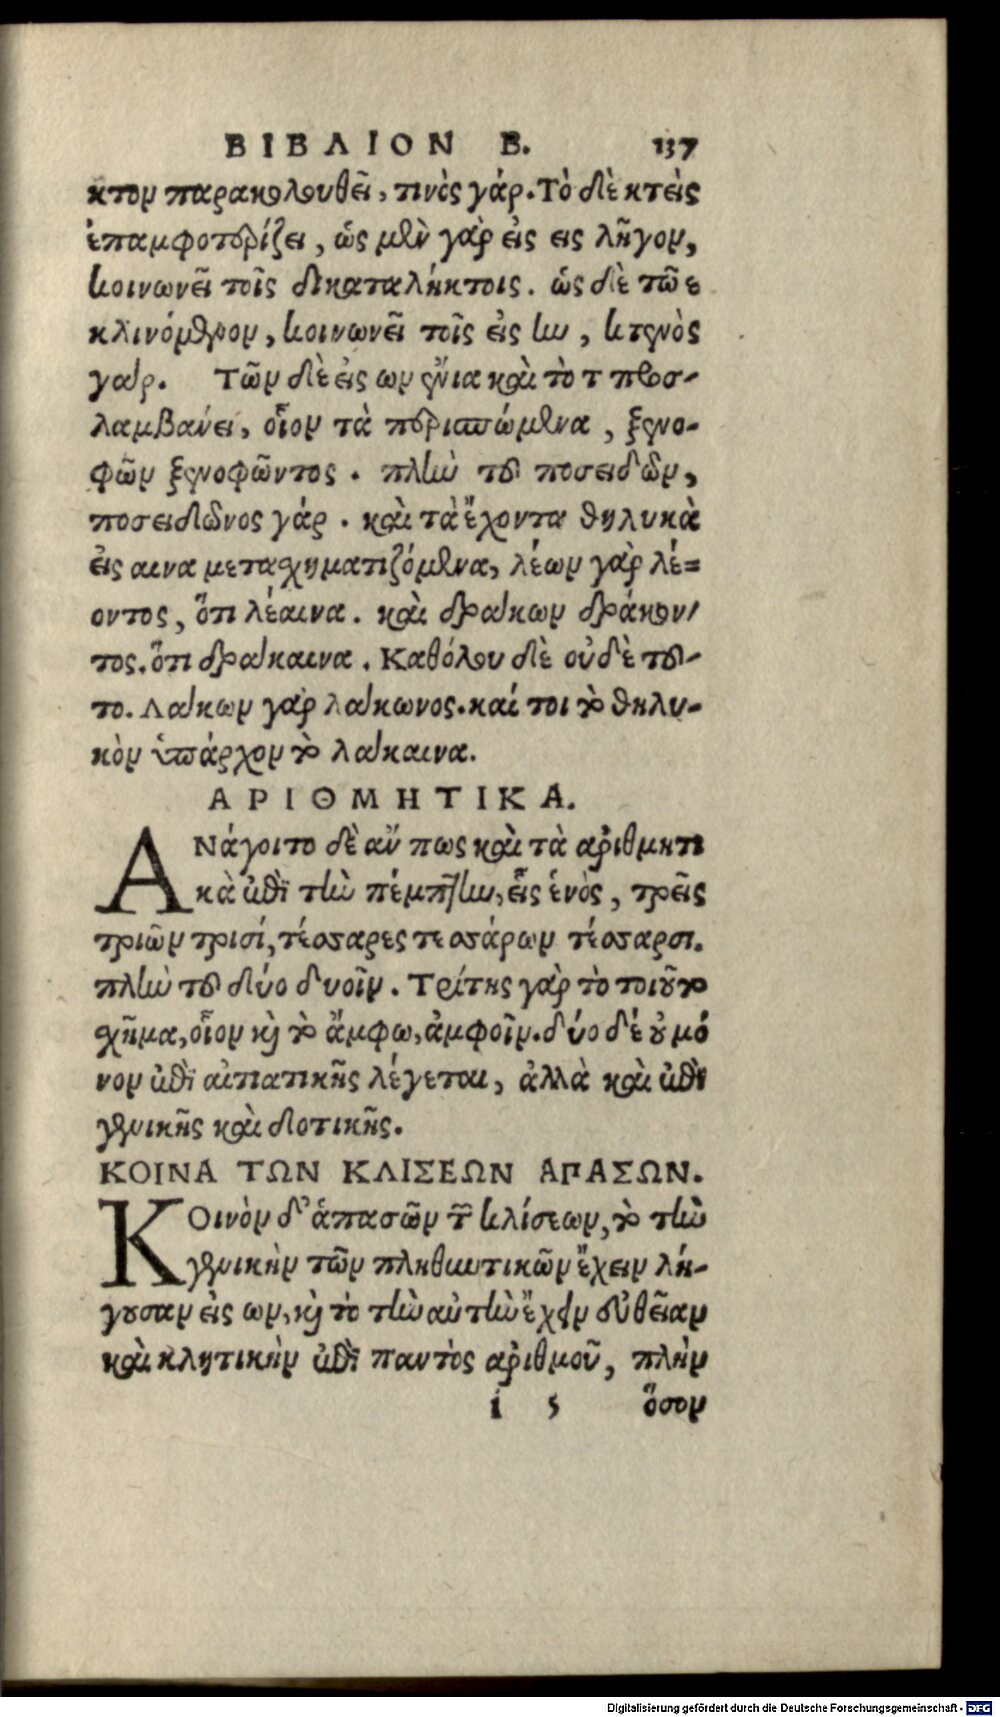 ΒΙΒΛΙΟΝ Β. 137
κτον παρακολουθεῖ, τινὲς γάρ. Τὸ δὲ κτεὶς
ἐπαμφοτερίζει, ὡς μὲν γὰρ εἰς εις λῆγον,
κοινωνεῖ τοῖς δικαταλήκτοις. ὡς δὲ τῶ ε
κλινόμενον, κοινωνεῖ τοῖς εἰς ην, κτενὸς
γάρ. Τῶν δὲ εἰς ων ἔνια καὶ τὸ τ προσ-
λαμβάνει, οἷον τὰ περισπώμενα, ξενο-
φῶν ξενοφῶντος. πλὴν τοῦ ποσειδῶν,
ποσειδῶνος γάρ. καὶ τὰ ἔχοντα θηλυκὰ
εἰς αινα μετασχηματιζόμενα, λέων γὰρ λέ=
οντος, ὅτι λέαινα. καὶ δράκων δράκον/
τος. ὅτι δράκαινα. Καθόλου δὲ οὐδὲ τοῦ-
το. Λάκων γὰρ λάκωνος. καί τοι τὸ θηλυ-
κὸν ὑπάρχον τὸ λάκαινα.
ΑΡΙΘΜΗΤΙΚΑ.
ΑΝάγοιτο δὲ ἄν πως καὶ τὰ ἀριθμητι
κὰ ἐπὶ τὴν πέμπτην, εἷς ἑνὸς, τρεῖς
τριῶν τρισί, τέσσαρες τεσσάρων τέσσαρσι.
πλὴν τοῦ δύο δυοῖν. Τρίτης γὰρ τὸ τοιοῦτο
σχῆμα, οἷον καὶ τὸ ἄμφω, ἀμφοῖν. δύο δὲ οὐ μό
νον ἐπὶ αἰτιατικῆς λέγεται, ἀλλὰ καὶ ἐπὶ
γενικῆς καὶ δοτικῆς.
ΚΟΙΝΑ ΤΩΝ ΚΛΙΣΕΩΝ ΑΠΑΣΩΝ.
ΚΟινὸν δ' ἁπασῶν τῶν κλίσεων, τὸ τὴν
γενικὴν τῶν πληθυντικῶν ἔχειν λή-
γουσαν εἰς ων, καὶ τὸ τὴν αὐτὴν ἔχειν εὐθεῖαν
καὶ κλητικὴν ἐπὶ παντὸς ἀριθμοῦ, πλὴν
i 5 ὅσον
Digitalisierung gefördert durch die Deutsche Forschungsgemeinschaft - DFG